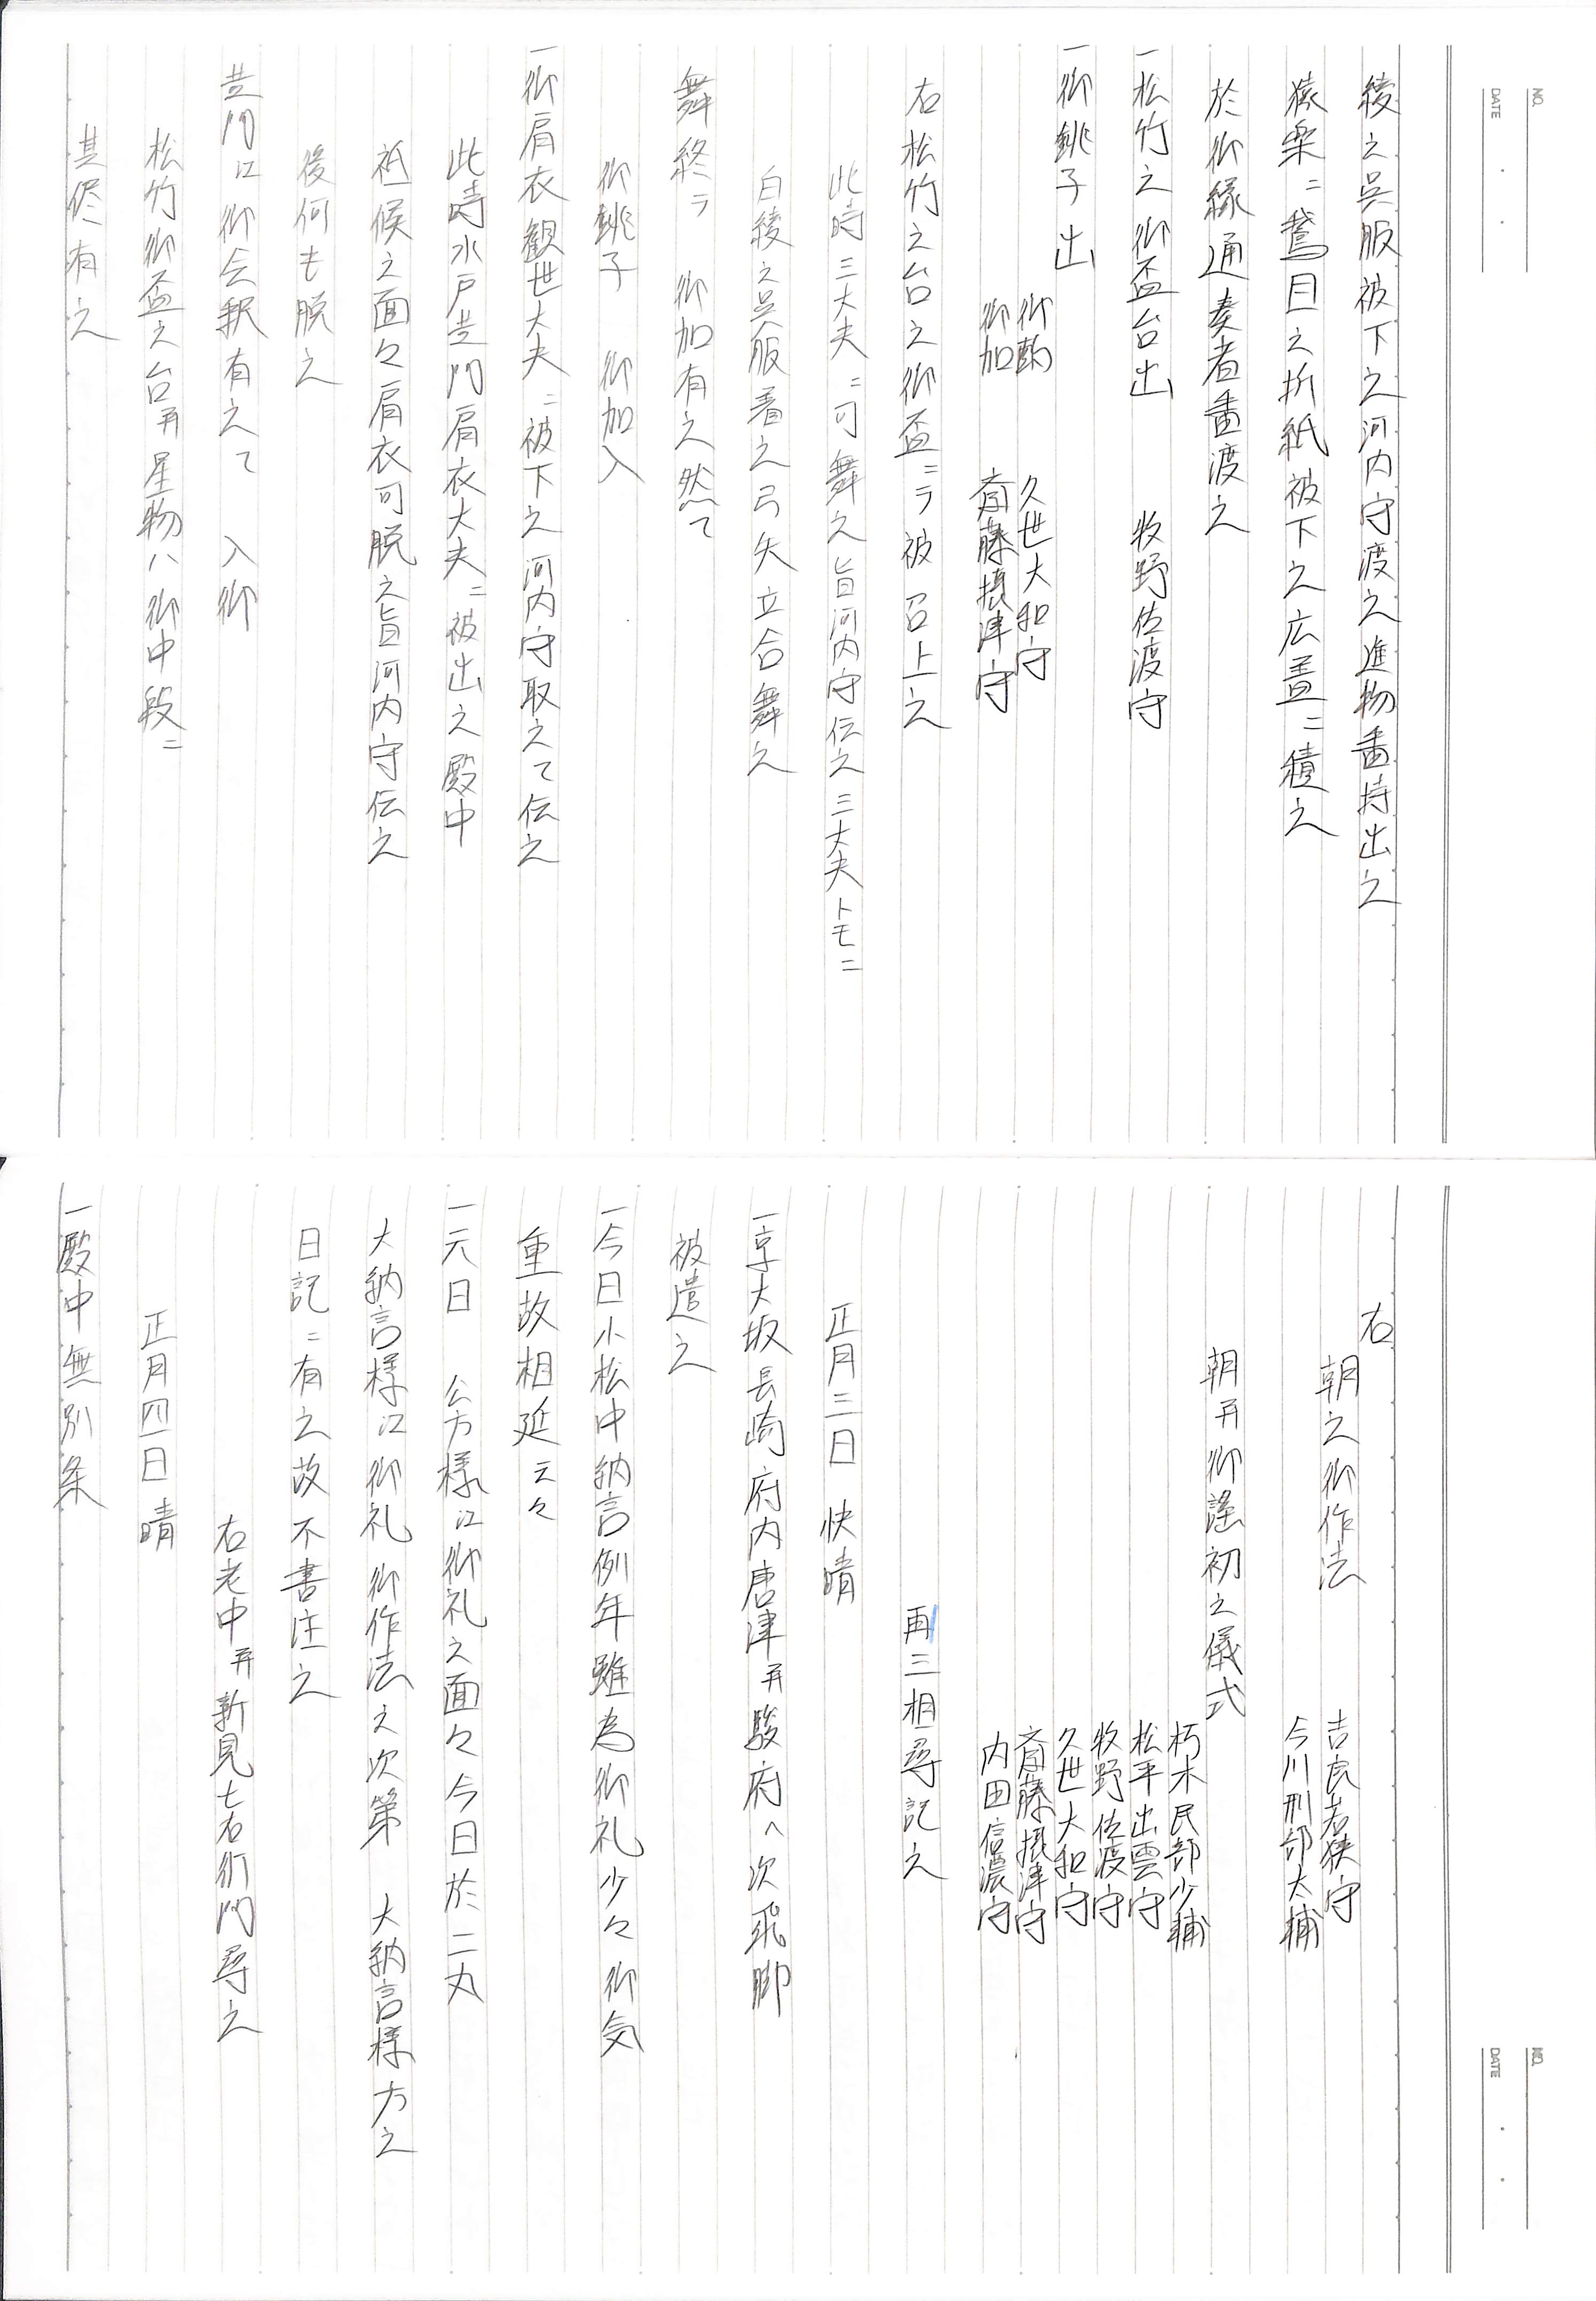 NO.
DATE
綾之呉服被下之河内守渡之進物番持出之
猿楽ニ鵞目之折紙被下之広蓋ニ積之
於御縁通奏者番渡之
一松竹之御盃台出　牧野佐渡守
一御銚子出
御酌　久世大和守
御加　斎藤摂津守
右松竹之台之御盃ニテ被召上之
此時三大夫ニ可舞之旨河内守伝之三大夫トモニ
白綾之呉服着之弓矢立合舞之
舞終テ　御加有之然て
御銚子　御加入
一御肩衣観世大夫ニ被下之河内守取之て伝之
此時水戸黄門肩衣大夫ニ被出之殿中
祗候之面々肩衣可脱之旨河内守伝之
後何も脱之
黄門江御会釈有之て　入御
松竹御盃之台并星物ハ御中段ニ
其侭有之
NO.
DATE
右
朝之御作法　吉良若狭守
今川刑部大輔
朝并御謡初之儀式
朽木民部少輔
松平出雲守
牧野佐渡守
久世大和守
斎藤摂津守
内田信濃守
再三相尋記之
正月三日　快晴
一京大坂長崎府内唐津并駿府へ次飛脚
被遣之
一今日小松中納言例年雖為御礼少々御気
重故相延云々
一元日　公方様江御礼之面々今日於二丸
大納言様江御礼御作法之次第　大納言様方之
日記ニ有之故不書注之
右老中并新見七右衛門尋之
正月四日晴
一殿中無別条